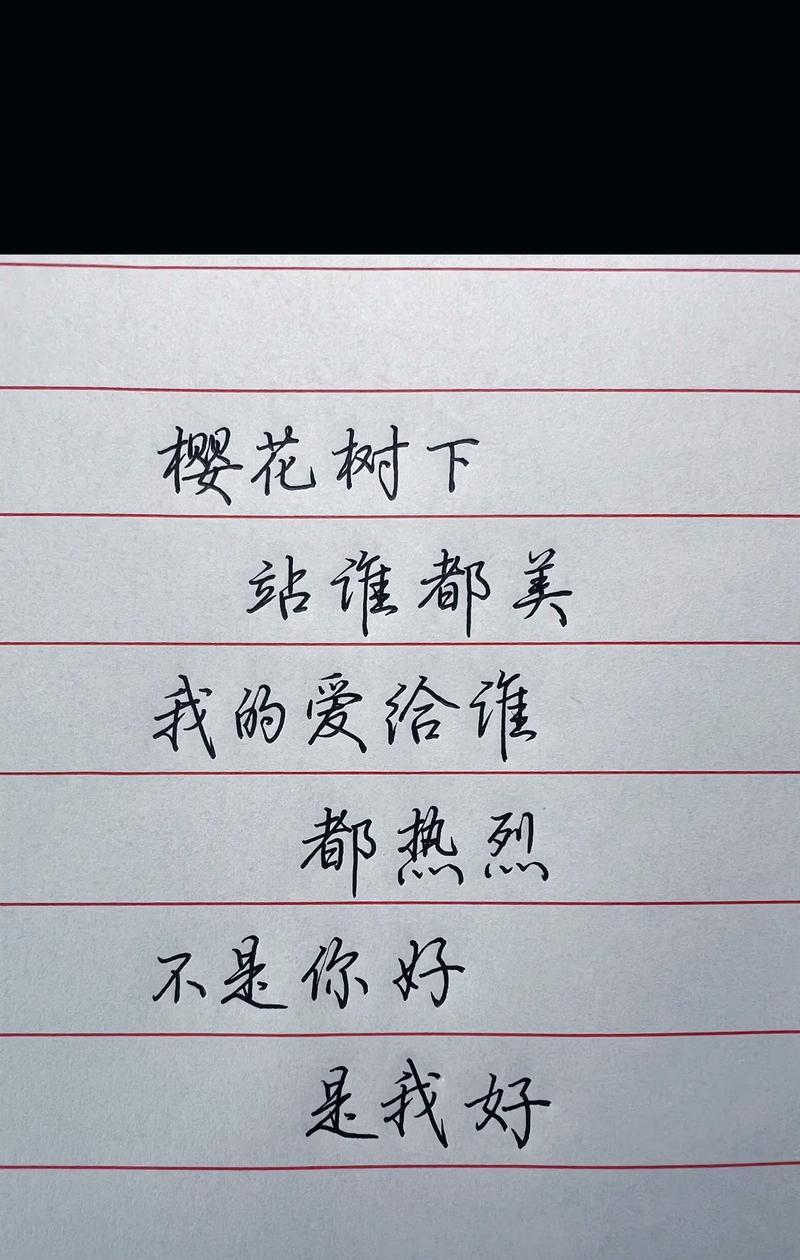 樱花树下
站谁都美
我的爱给谁
都热烈
不是你好
是我好